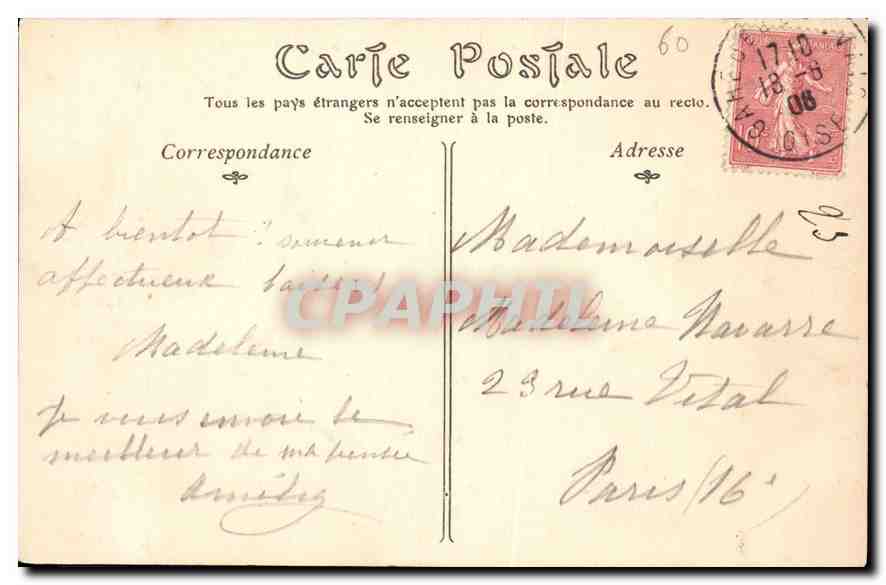 Carte Postale
60
Tous les pays étrangers n'acceptent pas la correspondance au recto.
Se renseigner à la poste.
17 10
18 - 6
06
OISE
10
Correspondance
Adresse
25
A bientôt souvenir
affectueux baisers
Madeleine
Je vous envoie le
meilleur de ma pensée
Mademoiselle
Madeleine Navarre
23 rue Vital
Paris (16e)
CPAPHIL